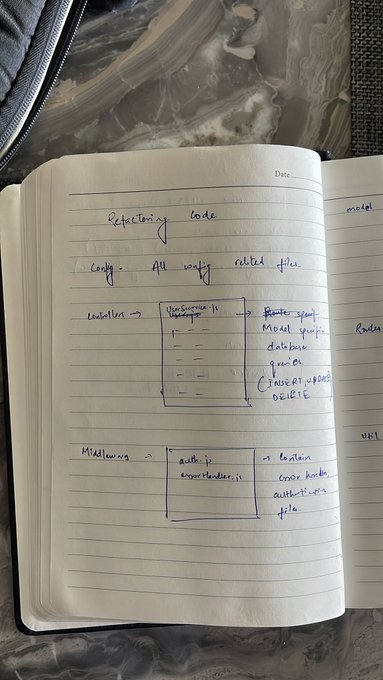 Date
Refactoring Code
Config - All config related files.
Controllers → UserService.js → Route specif
Model specific
database
queries
(INSERT, UPDATE
DELETE
Middleware → auth.js → Contain
errorHandler.js error handler,
authentication
files.
model
Routes
Util